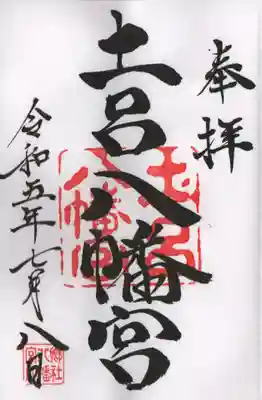 奉拝
土呂八幡宮
令和五年七月八日